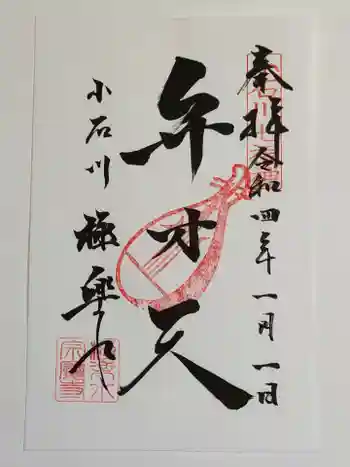 奉拝
令和四年一月一日
弁才天
小石川
極楽水